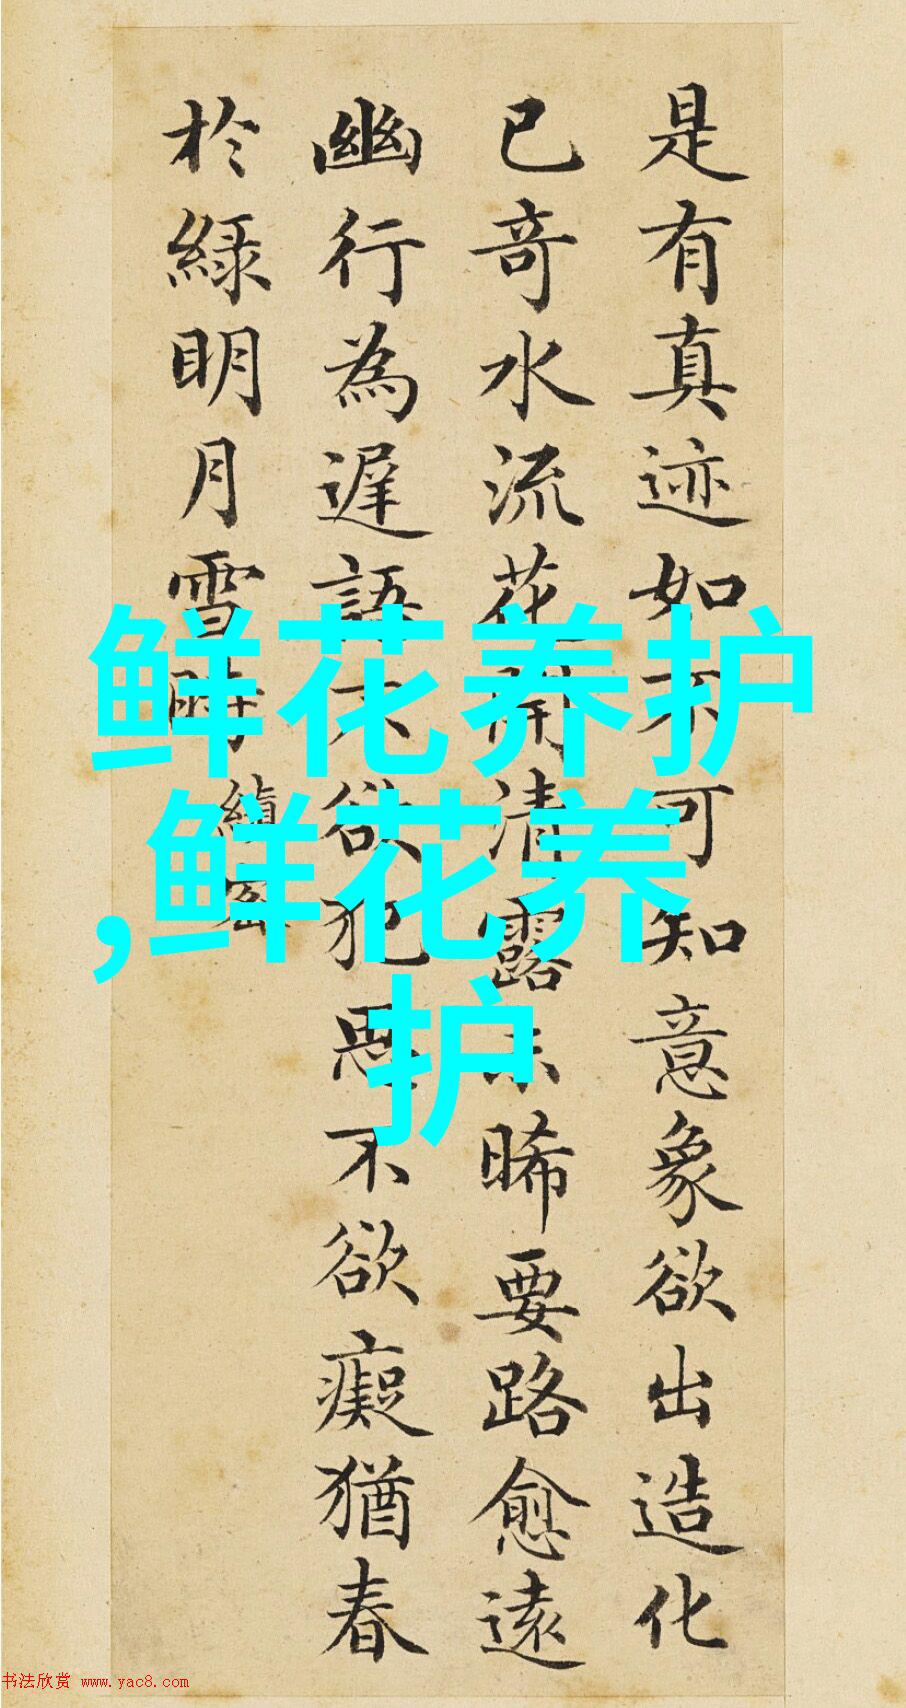 是有真迹如不可知意象欲出造化
已竒水流花開清露未晞要路愈遠
幽行為遲語不欲犯思不欲癡猶春
於綠明月雪時
縝密
鲜花养护
,鲜花养
护
书法欣赏 www.yac8.com